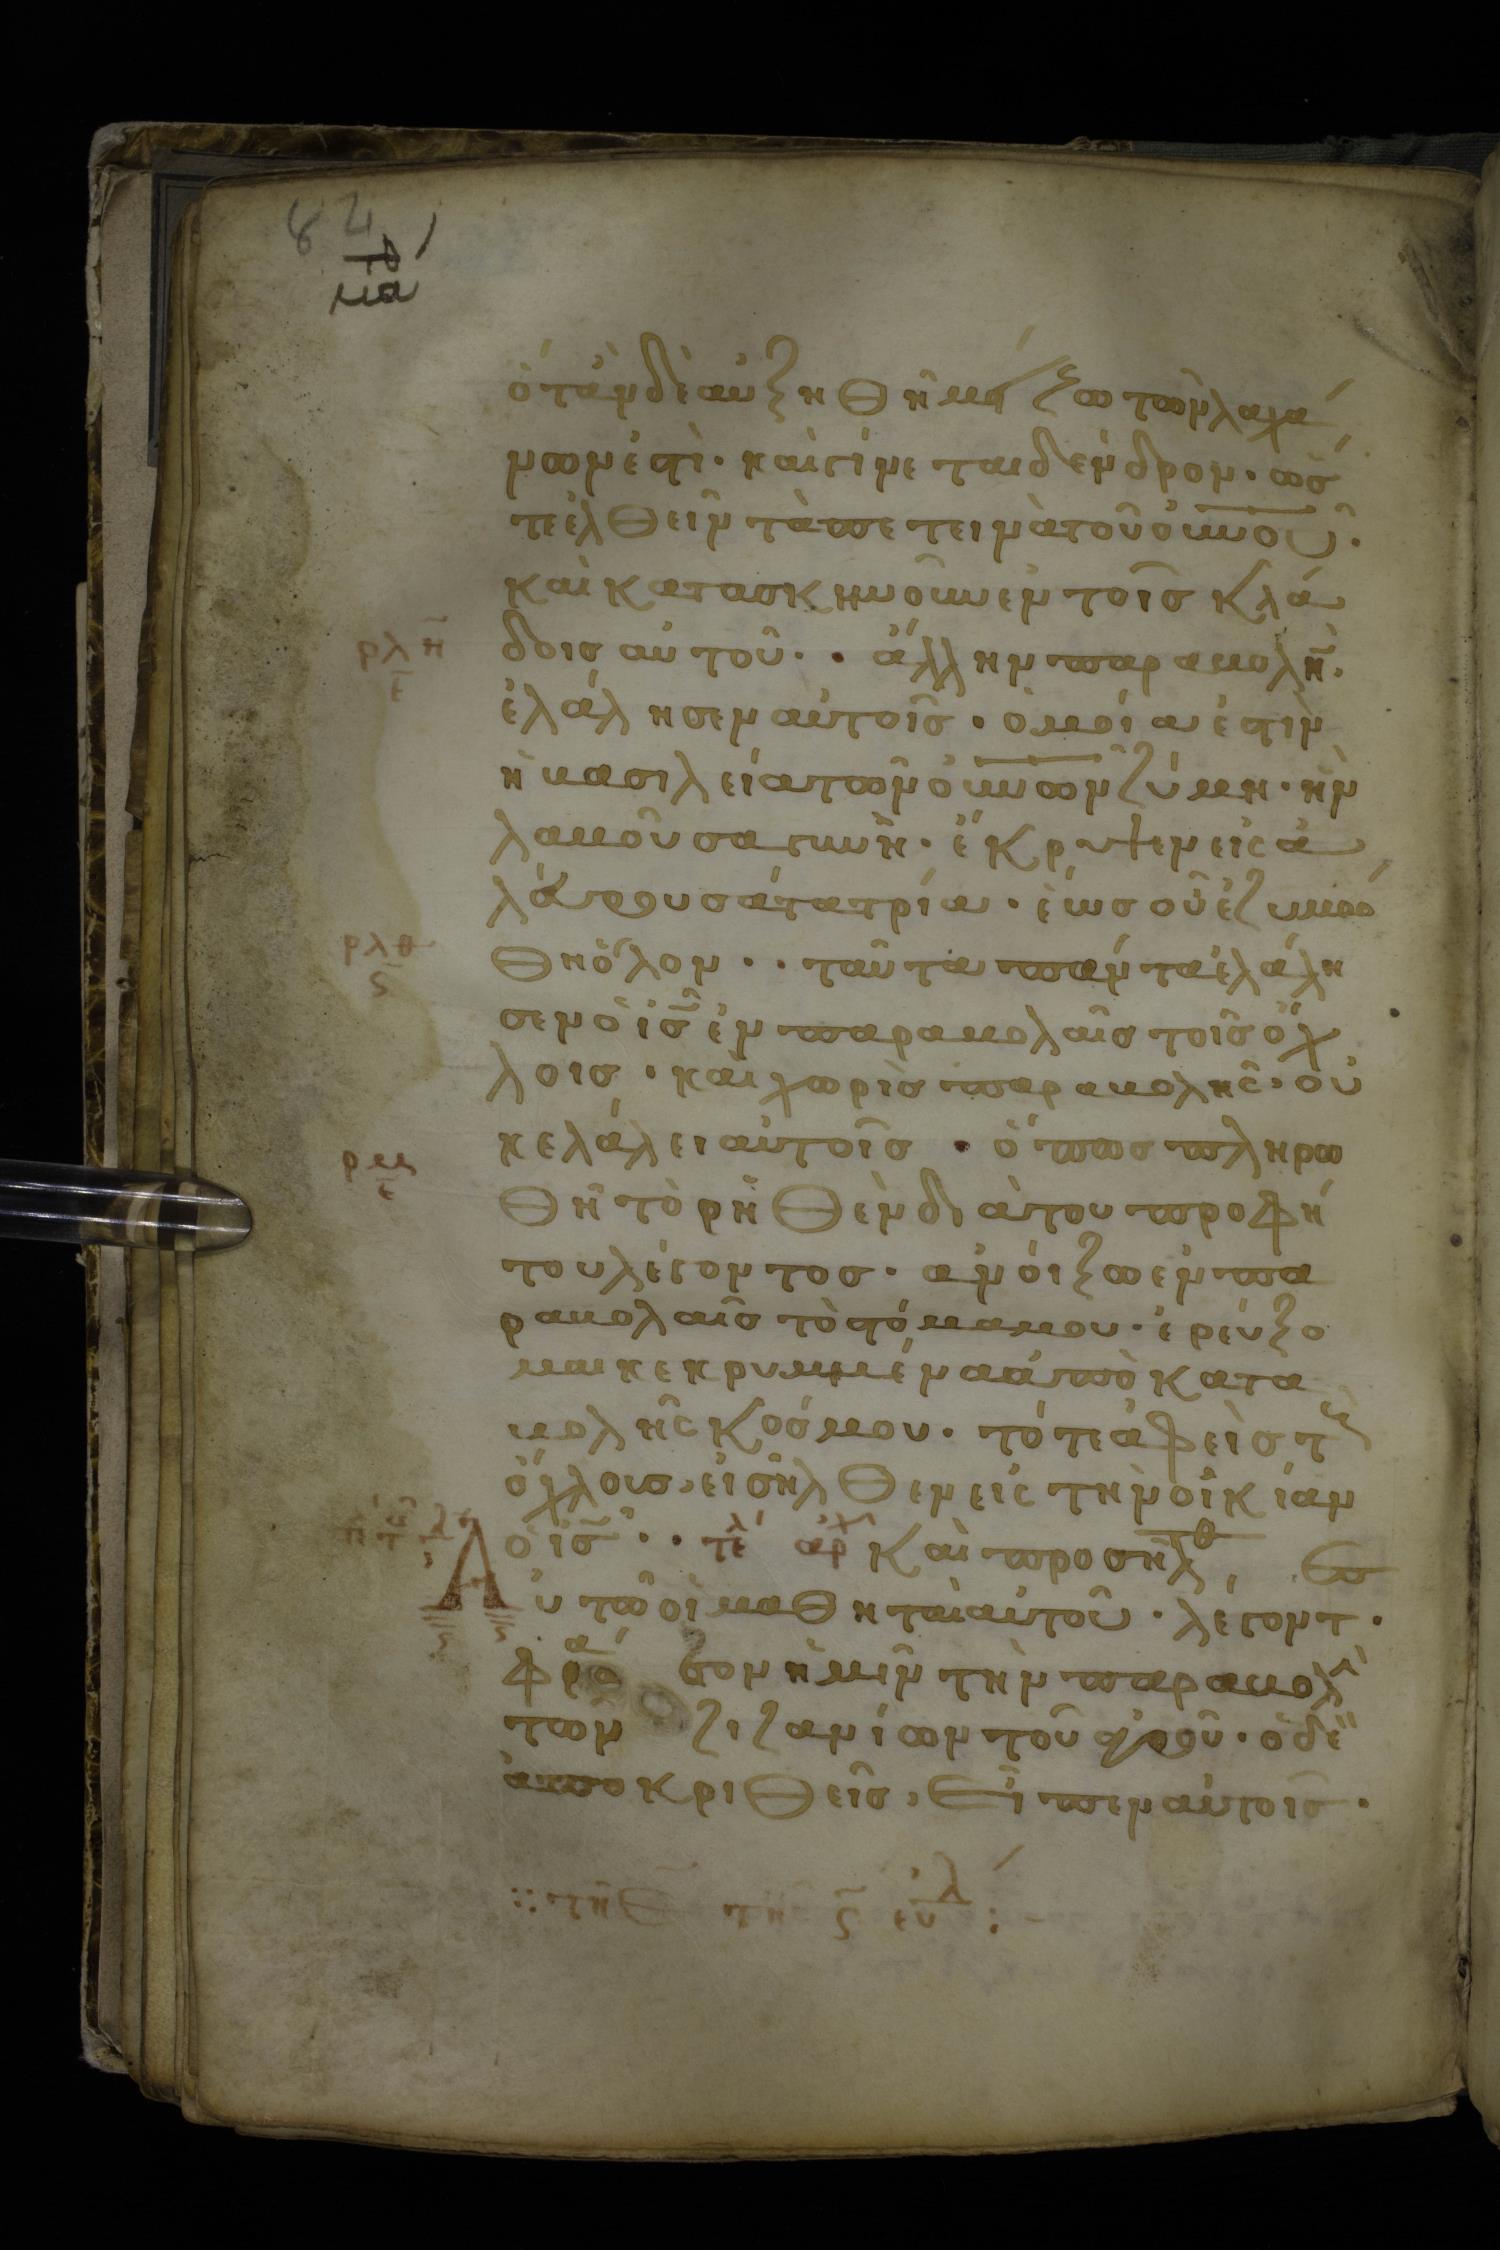 84
μα
ὁτὰν δὲ αὐξηθῆ μείζω τῶν λαχά
νων ἐστὶ· καὶ γίνεται δένδρον· ὥσ
τε ἐλθεῖν τὰ πετεινὰ τοῦ οὐνοῦ·
καὶ κατασκηνοῦν ἐν τοῖς κλά
ρλη
ε
δοις αὐτοῦ·· ἄλλην παραβολὴν·
ἐλάλησεν αὐτοῖς· ὁμοία ἐστὶν
ἡ βασιλεία τῶν οὐνῶν ζύμη· ἣν
λαβοῦσα γυνὴ· ἔκρυψεν εἰς ἀ
λεύρου σάτα τρία· ἕως οὗ ἐζυμώ
ρλθ
ϛ
θη ὅλον·· ταῦτα πάντα ἐλάλη
σεν ὁ ἰς ἐν παραβολαῖς τοῖς ὄχ
λοις· καὶ χωρὶς παραβολῆς· οὐ
ρμ
ε
κ ἐλάλει αὐτοῖς· ὅπως πληρω
θῆ τὸ ρηθὲν διὰ του προφή
του λέγοντος· ἀνοίξω ἐν πα
ραβολαῖς τὸ στόμα μου· ἐρεύξο
μαι κεκρυμμένα ἀπὸ κατα
βολῆς κόσμου· τότε ἀφεὶς τοὺς
ὄχλους, εἰσῆλθεν εἰς τὴν οἰκίαν
ὁ ἰς·· τελ αρχ καὶ προσῆλθ
Αὐτῶ οἱ μαθηταὶ αὐτοῦ· λέγοντ·
φράσον ἡμῖν τὴν παραβολὴ
τῶν ζιζανίων τοῦ ἀγροῦ· ὁ δὲ
ἀποκριθεὶς, εἶπεν αὐτοῖς·